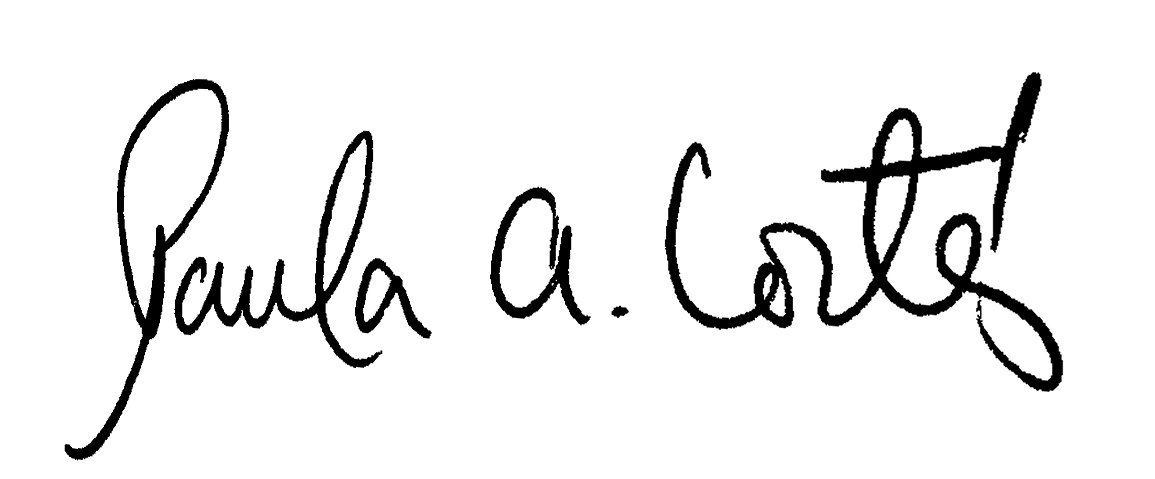 Paula A. Cortés